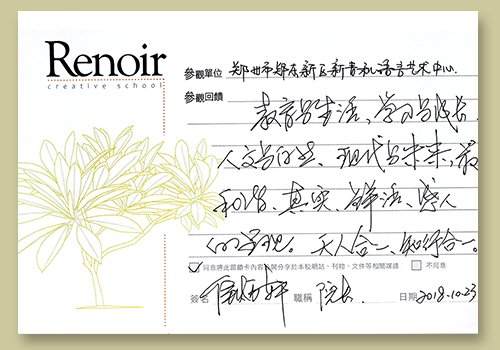 Renoir
creative school
參觀單位 郑州市郑东新区新青禾语言艺术中心.
參觀回饋
教育与生活、学习与成长、
人文与自然、现代与未来,最
和谐、真实、鲜活、感人
的呈现。天人合一、知行合一。
同意將此回饋卡內容公開分享於本校網站、刊物、文件等相關媒體 不同意
簽名 職稱 院长 日期 2018.10.23